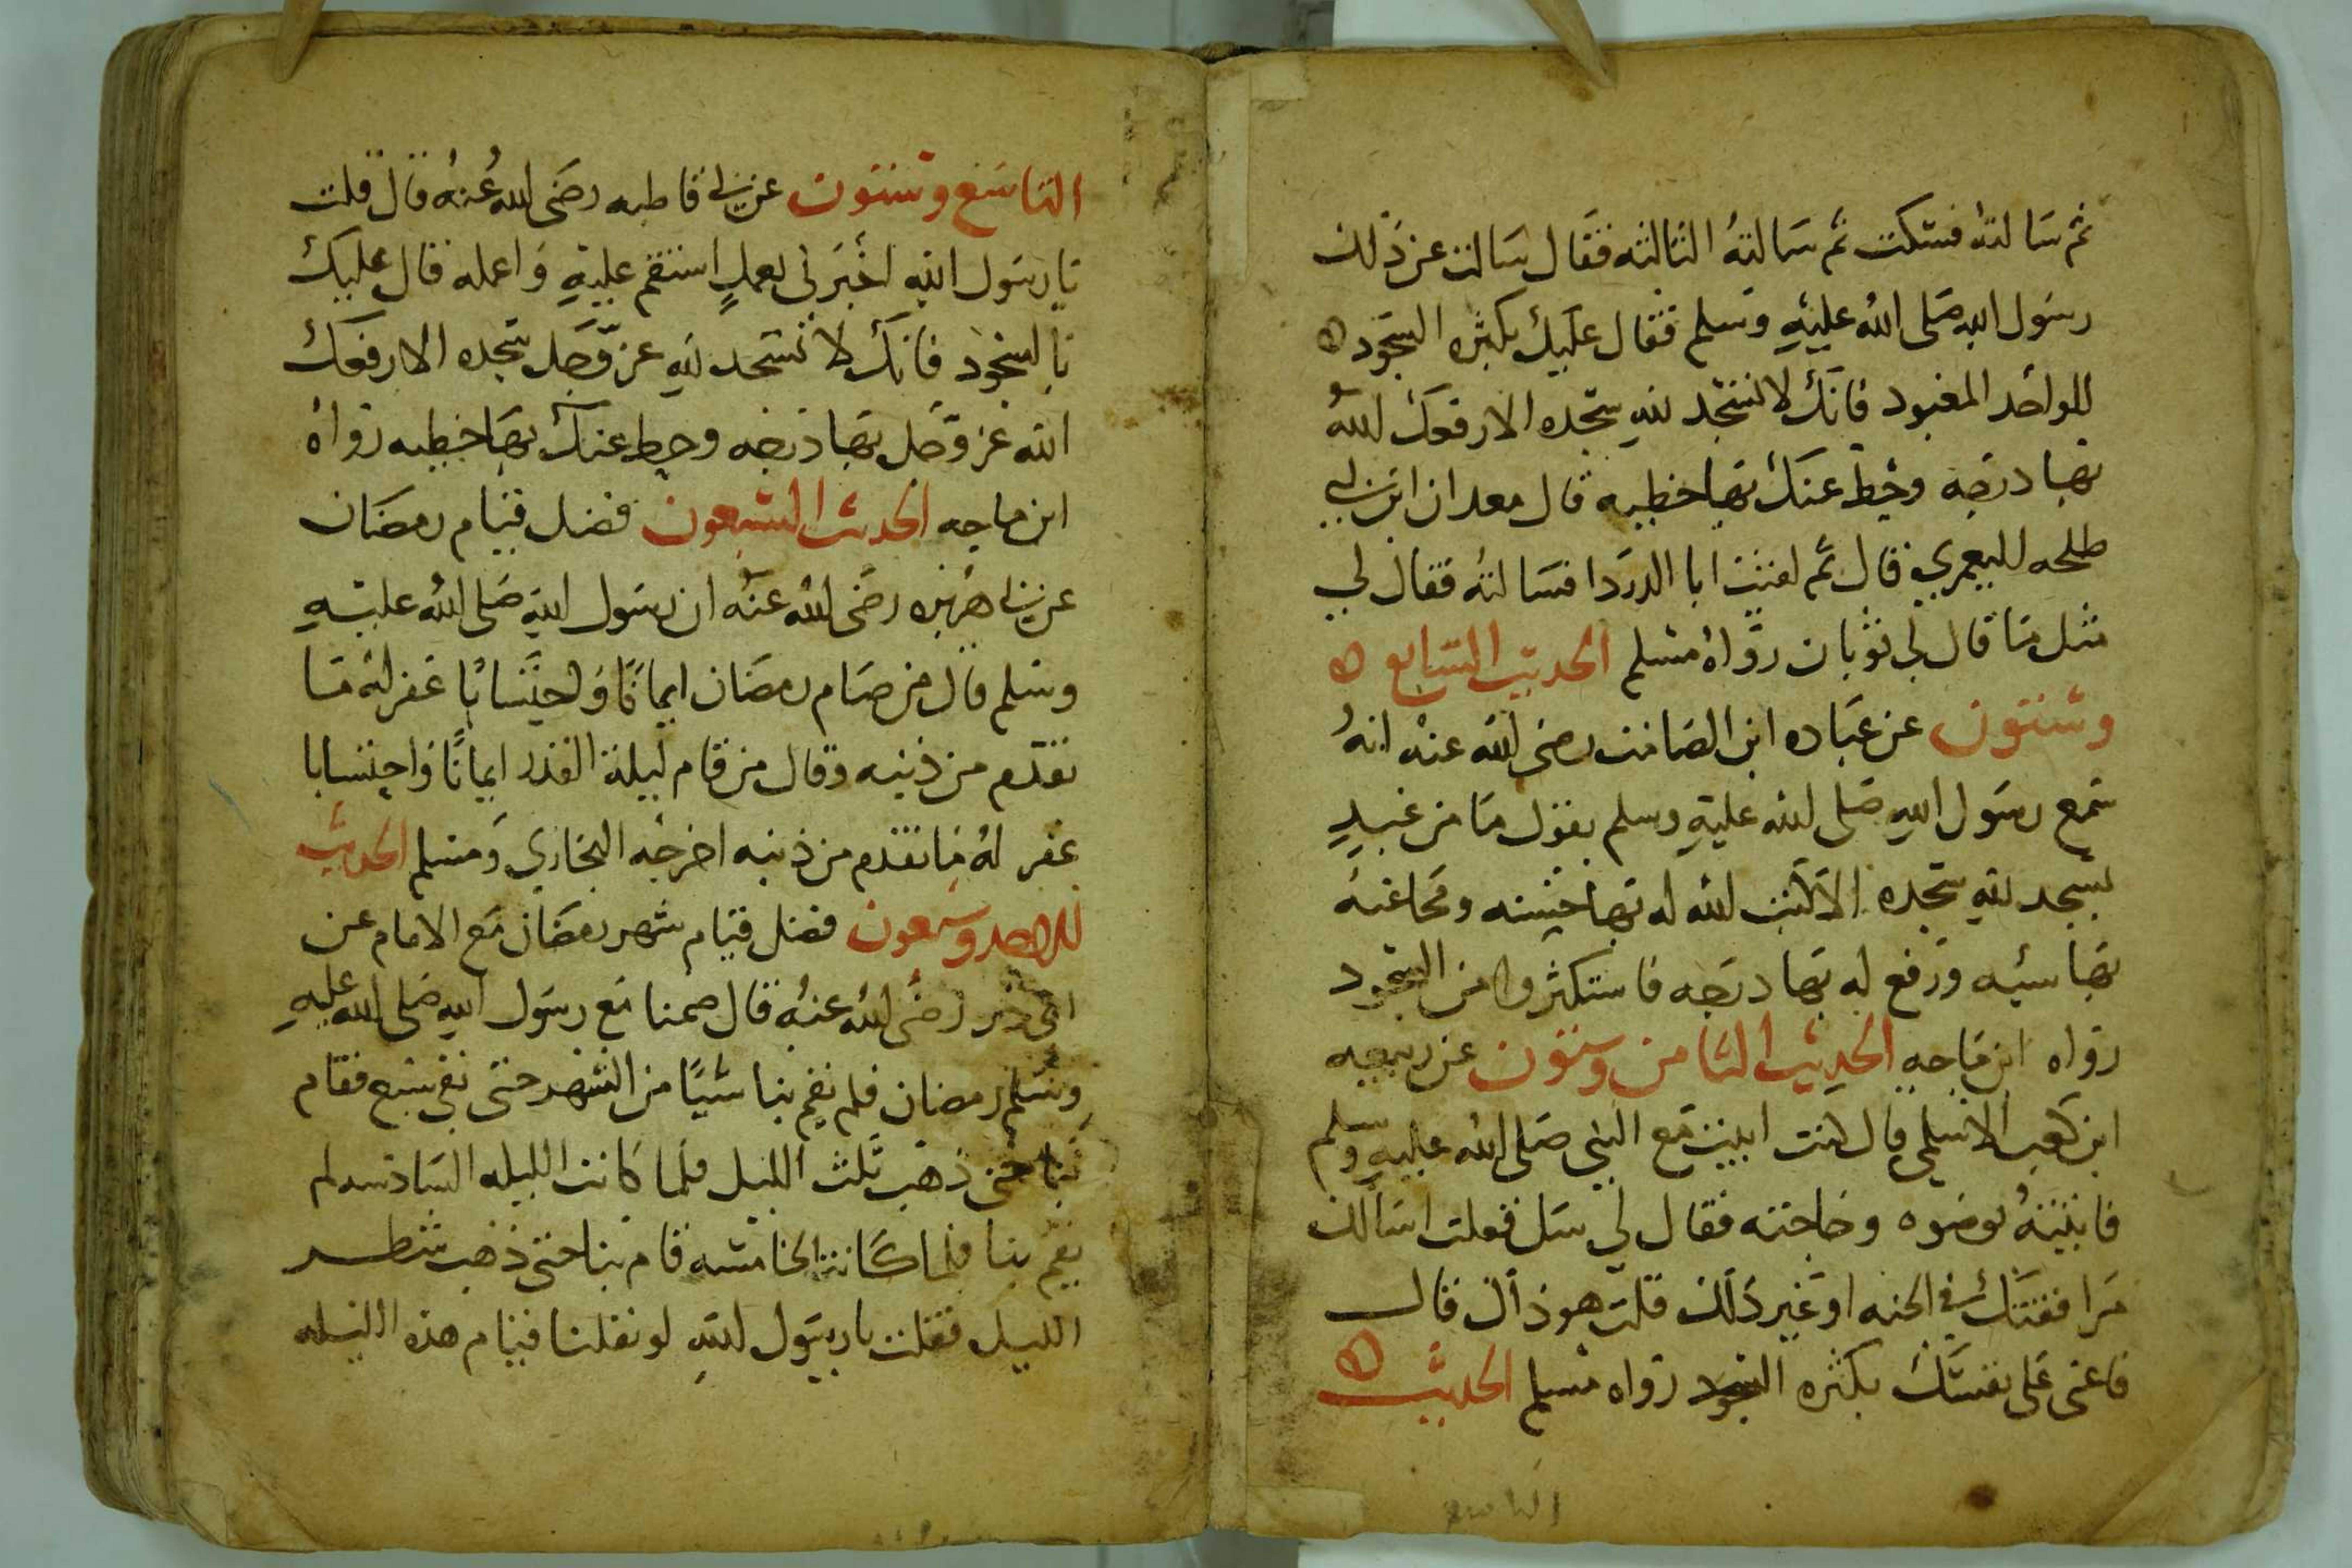 ثم سالته فسكت ثم سالته الثالثه فقال سالت عن ذلك
رسول الله صلى الله عليه وسلم فقال عليك بكثره السجود
للواحد المعبود فانك لا تسجد لله سجده الا رفعك الله
بها درجه وحط عنك بها خطيه قال معدان ابن ابي
طلحه اليعمري قال ثم لقيت ابا الدردا فسالته فقال لي
مثل ما قال لي ثوبان رواه مسلم الحديث السابع
وستون عن عباده ابن الصامت رضى الله عنه انه
سمع رسول الله صلى الله عليه وسلم يقول ما من عبد
يسجد لله سجده الا كتب الله له بها حسنه ومحا عنه
بها سيه ورفع له بها درجه فاستكثروا من السجود
رواه ابن ماجه الحديث الثامن وستون عن ربيعه
ابن كعب الاسلمي قال كنت ابيت مع النبي صلى الله عليه وسلم
فاتيته بوضوه وحاجته فقال لي سل فقلت اسالك
مرافقتك في الجنه او غير ذلك قلت هو ذاك قال
فاعنى على نفسك بكثره السجود رواه مسلم الحديث
التاسع
التاسع وستون عن ابي فاطمه رضى الله عنه قال قلت
يا رسول الله اخبرني بعمل استقم عليه واعمله قال عليك
بالسجود فانك لا تسجد لله عز وجل سجده الا رفعك
الله عز وجل بها درجه وحط عنك بها خطيه رواه
ابن ماجه الحديث السبعون فضل قيام رمضان
عن ابي هريره رضى الله عنه ان رسول الله صلى الله عليه
وسلم قال من صام رمضان ايمانا واحتسابا غفر له ما
تقدم من ذنبه وقال من قام ليلة القدر ايمانا واحتسابا
غفر له ما تقدم من ذنبه اخرجه البخاري ومسلم الحديث
الاحد وسبعون فضل قيام شهر رمضان مع الامام عن
ابي ذر رضى الله عنه قال صمنا مع رسول الله صلى الله عليه
وسلم رمضان فلم يقم بنا شيا من الشهر حتى بقي سبع فقام
بنا حتى ذهب ثلث الليل فلما كانت الليله السادسه لم
يقم بنا فلما كانت الخامسه قام بنا حتى ذهب شطر
الليل فقلت يا رسول الله لو نفلتنا قيام هذه الليله